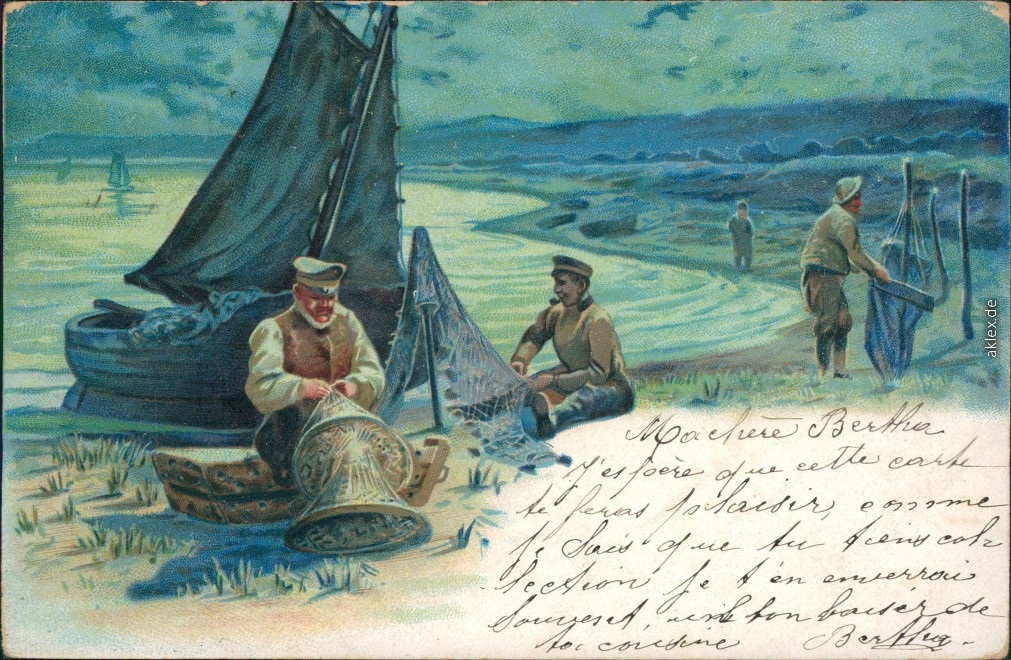 Ma chère Bertha
J'espère que cette carte
te feras plaisir, comme
je sais que tu tiens col-
lection je t'en enverrai
souvent, un bon baiser de
ta cousine Bertha.
aklex.de